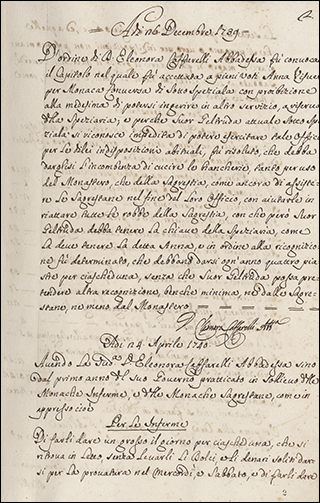 A dì 16 Decembre 1739
D'ordine di D. Eleonora Caffarelli Abbadessa fù convocato
il Capitolo nel quale fù accettata a pieni voti Anna
per Monaca Conversa di Sotto Speziala con proibizione
alla medesima di potersi ingerire in altro Servizio, a riserva
della Speziaria; e perche Suor Geltruda attuale Sotto Spe=
ziala si riconosce impedita di potere esercitare tale Officio
per le di lei indisposizioni abituali, fù risoluto, che debba
darglisi l'incombenza di cucire le biancherie tanto per uso
del Monastero, che della Sagrestia, come ancora di assistere
le Sagrestane nel fine del loro Officio, con aiutarle in
riattare tutte le robbe della Sagrestia, con che però Suor
Geltruda debba tenere la chiave della Speziaria, come
la deve tenere la detta Anna, e in ordine alla ricognizio=
ne fù determinato, che debbano darsi ogn'anno quattro pia=
stre per ciascheduna, senza che Suor Geltruda possa pre=
tendere altra recognizione, benche minima, nè dalle Sagre=
stane, ne meno dal Monastero
Eleonora Caffarelli Abb.a
Adi 14 Aprile 1740
Avendo la D. Eleonora Caffarelli Abbadessa sino
dal primo anno del Suo Governo pratticato in Sollievo delle
Monache Inferme, e delle Monache Sagrestane, come in
appresso cioè
Per le Inferme
Di farli dare un grosso il giorno per ciascheduna, che si
ritrova in letto senza levarli li Bolzi, e li denari soliti dar=
si per la provatura nel Mercordì, e Sabbato, e di farli dare